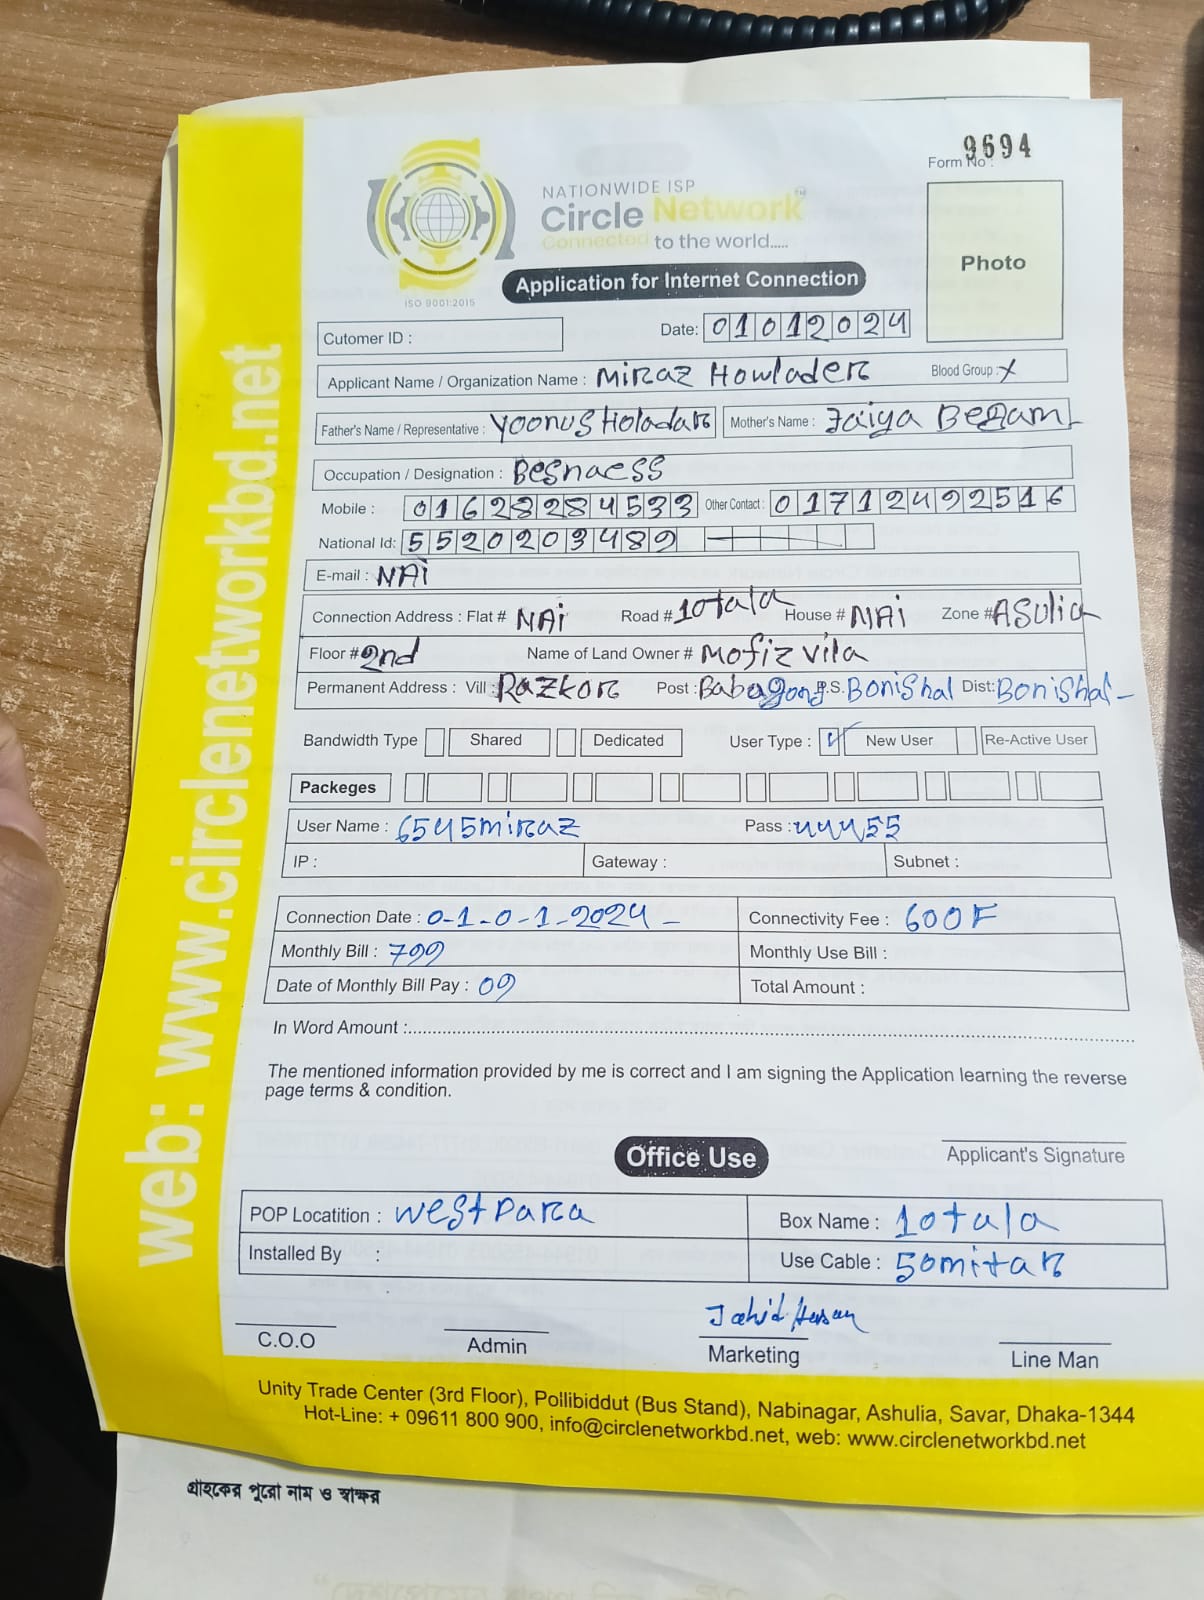 Form No : 9694
NATIONWIDE ISP
Circle Network™
Connected to the world.....
ISO 9001:2015
Application for Internet Connection
Photo
Cutomer ID :
Date: 01012024
Applicant Name / Organization Name : Miraz Howlader Blood Group : X
Father's Name / Representative : Yoonus Holadar Mother's Name : Jaiya Begam
Occupation / Designation : Besnaess
Mobile : 01628284533 Other Contact : 01712492516
National Id: 5520203489
E-mail : NAi
Connection Address : Flat # NAi Road # 10tala House # NAi Zone # ASulia
Floor # 2nd Name of Land Owner # Mofiz vila
Permanent Address : Vill : Razkor Post : Babagong P.S. Bonishal Dist: Bonishal
Bandwidth Type Shared Dedicated User Type : ✓ New User Re-Active User
Packeges
User Name : 6545miraz Pass : 44455
IP : Gateway : Subnet :
Connection Date : 0-1-0-1-2024- Connectivity Fee : 600F
Monthly Bill : 799 Monthly Use Bill :
Date of Monthly Bill Pay : 09 Total Amount :
In Word Amount :
The mentioned information provided by me is correct and I am signing the Application learning the reverse
page terms & condition.
Applicant's Signature
Office Use
POP Locatition : west para Box Name : 10tala
Installed By : Use Cable : 50mitar
Jahid Hasan
C.O.O Admin Marketing Line Man
Unity Trade Center (3rd Floor), Pollibiddut (Bus Stand), Nabinagar, Ashulia, Savar, Dhaka-1344
Hot-Line: + 09611 800 900, info@circlenetworkbd.net, web: www.circlenetworkbd.net
web: www.circlenetworkbd.net
গ্রাহকের পুরো নাম ও স্বাক্ষর